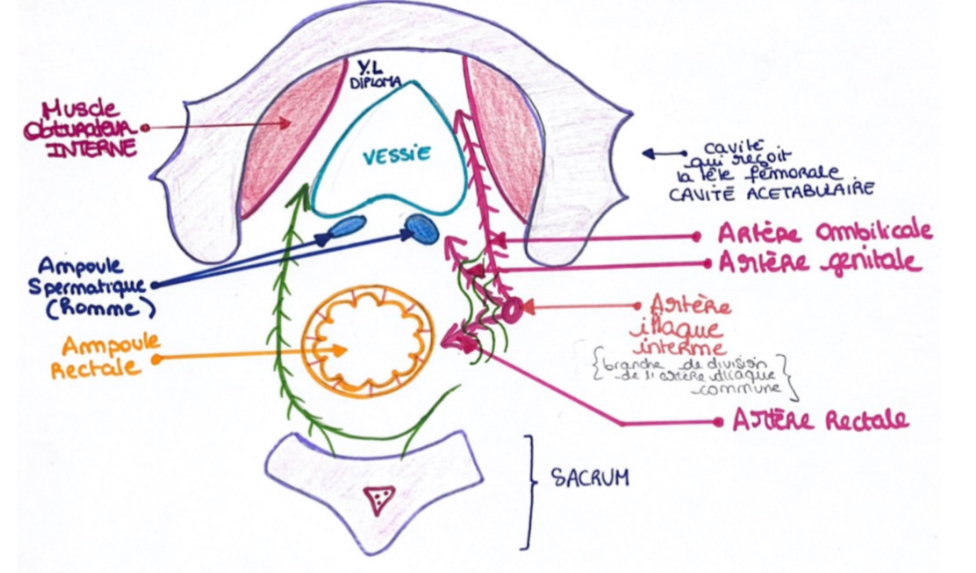 Y.L
DIPLOMA
Muscle
Obturateur
INTERNE
VESSIE
cavité
qui reçoit
la tête fémorale
CAVITÉ ACETABULAIRE
Artère Ombilicale
Artère genitale
Ampoule
Spermatique
(homme)
Artère
iliaque
interne
{branche de division
de l'artère iliaque
commune}
Ampoule
Rectale
Artère Rectale
SACRUM